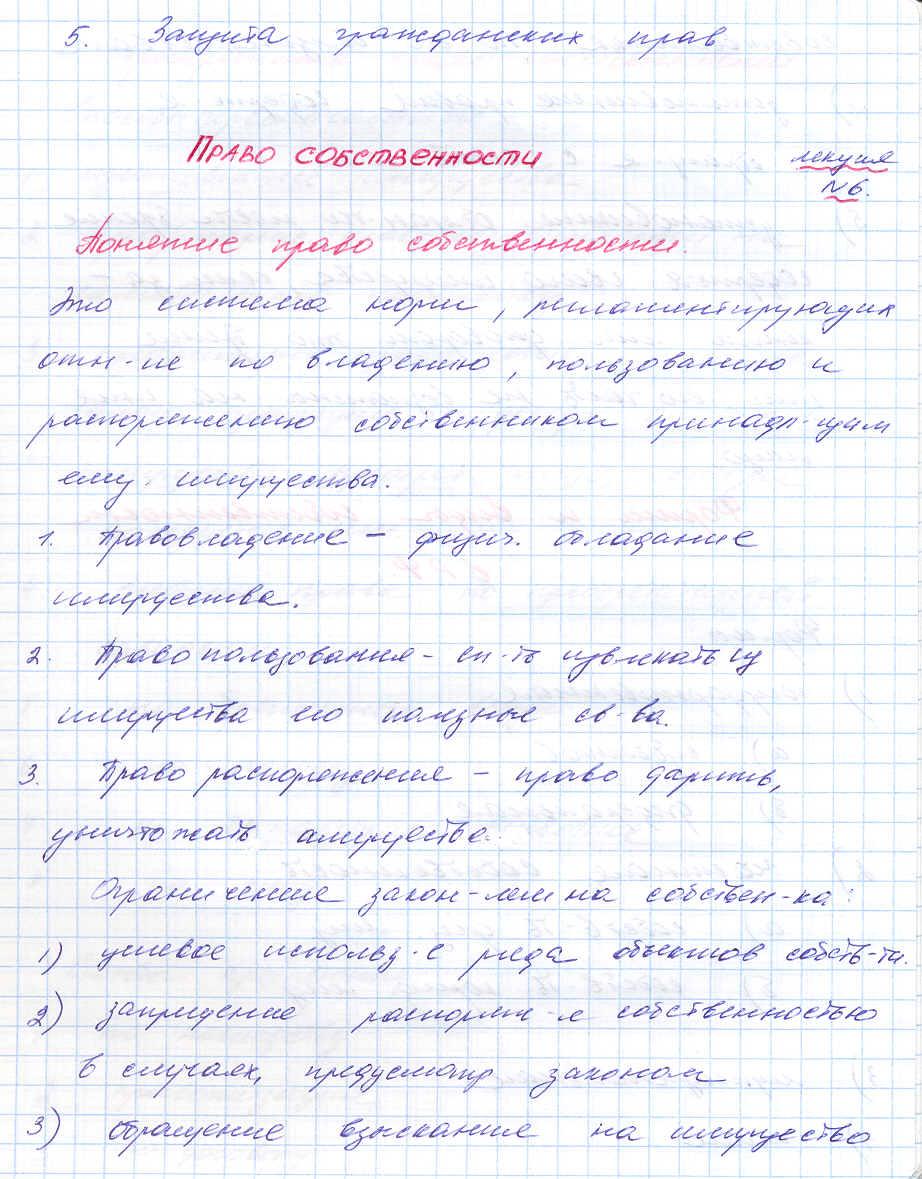 5. Защита гражданских прав
Право собственности
лекция
N6.
Понятие право собственности.
Это система норм, регламентирующих
отн-ие по владению, пользованию и
распоряжению собственником принадл-щим
ему имущества.
1. Правовладение – физич. обладание
имущества.
2. Право пользования – сп-ть извлекать из
имущества его полезные св-ва.
3. Право распоряжения – право дарить,
уничтожать имущество.
Ограничение закон-лем на собствен-ка:
1) целевое использ-е ряда объектов собств-ти.
2) запрещение распоряж-я собственностью
в случаях, предусмотр законом
3) обращение взыскание на имущество